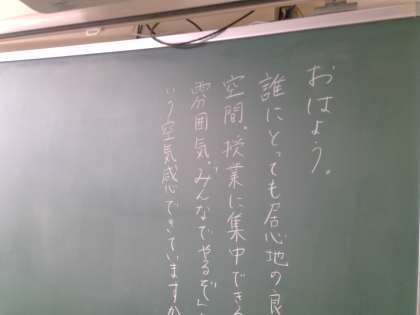 おはよう。
誰にとっても居心地の良
空間、授業に集中できる
雰囲気、「みんなでやるぞ」
いう空気感できていますか